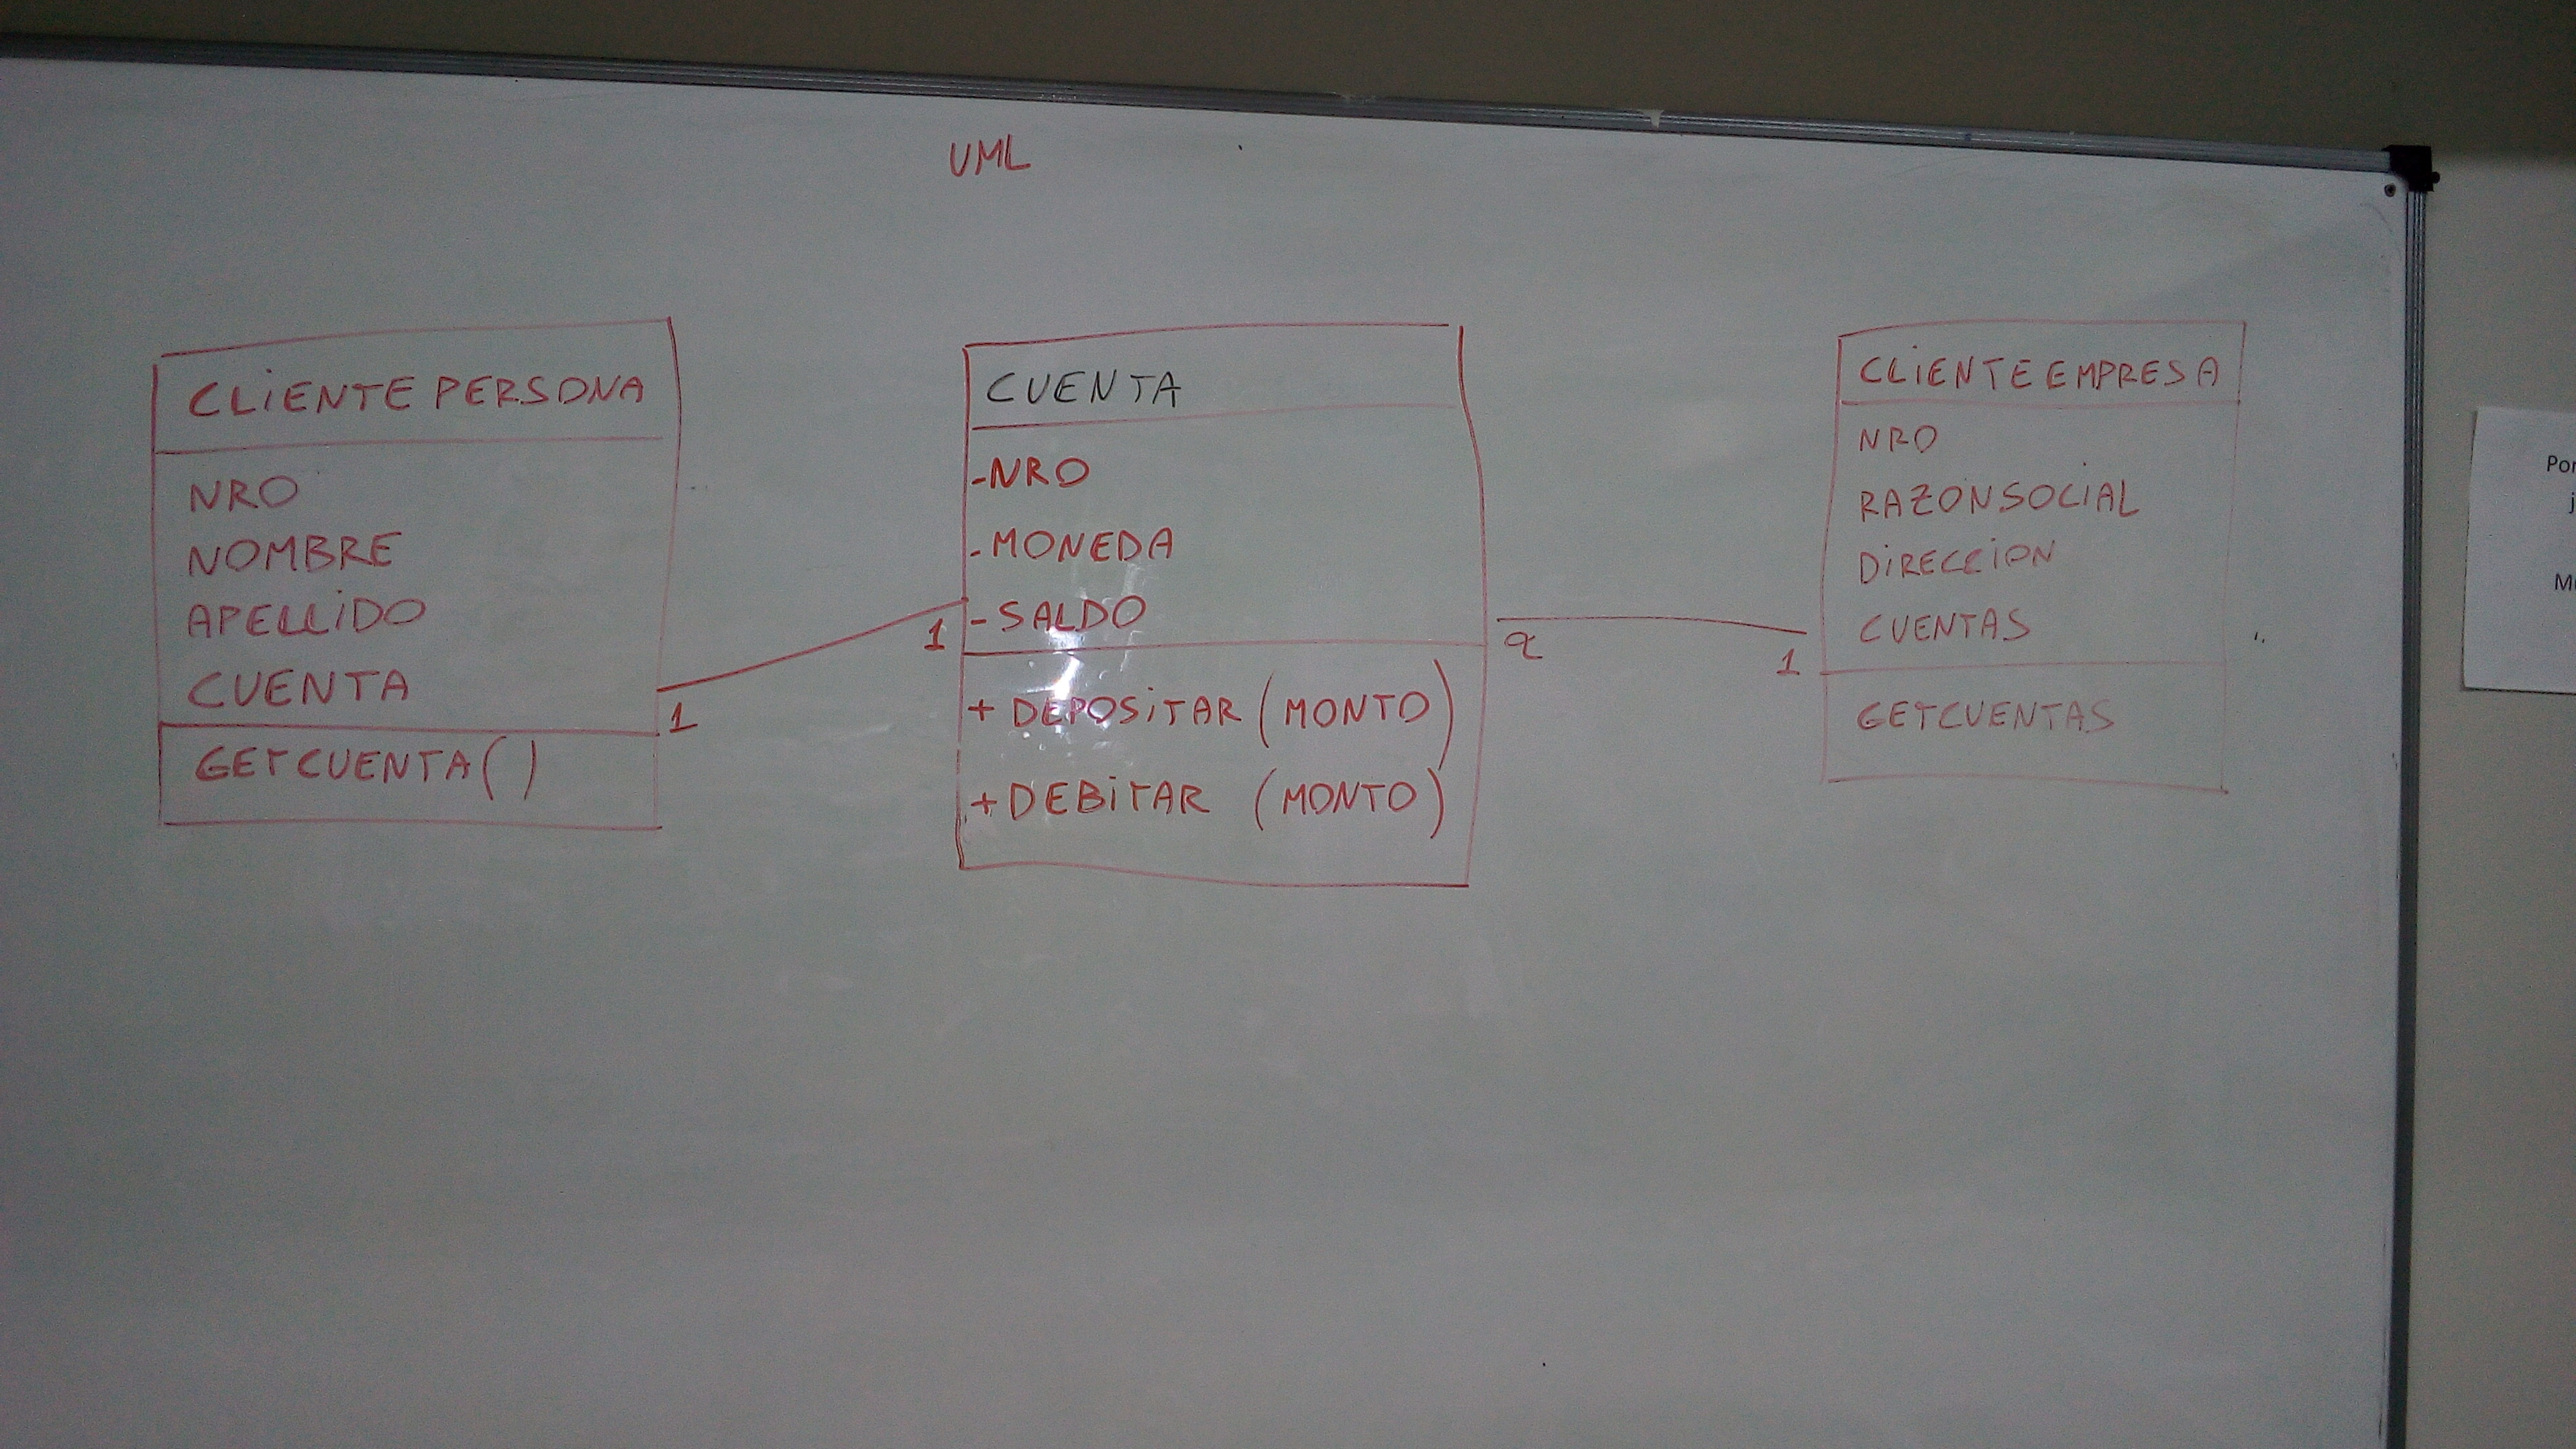 UML
CLIENTE PERSONA
NRO
NOMBRE
APELLIDO
CUENTA
GETCUENTA()
1
1
CUENTA
-NRO
-MONEDA
-SALDO
+ DEPOSITAR (MONTO)
+ DEBITAR (MONTO)
1
CLIENTE EMPRESA
NRO
RAZONSOCIAL
DIRECCION
CUENTAS
GETCUENTAS